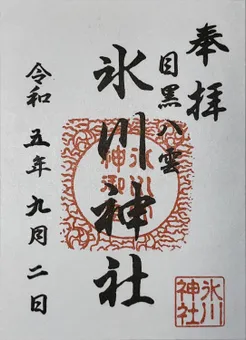 奉拝
目黒八雲
氷川神社
令和五年九月二日
氷川
神社